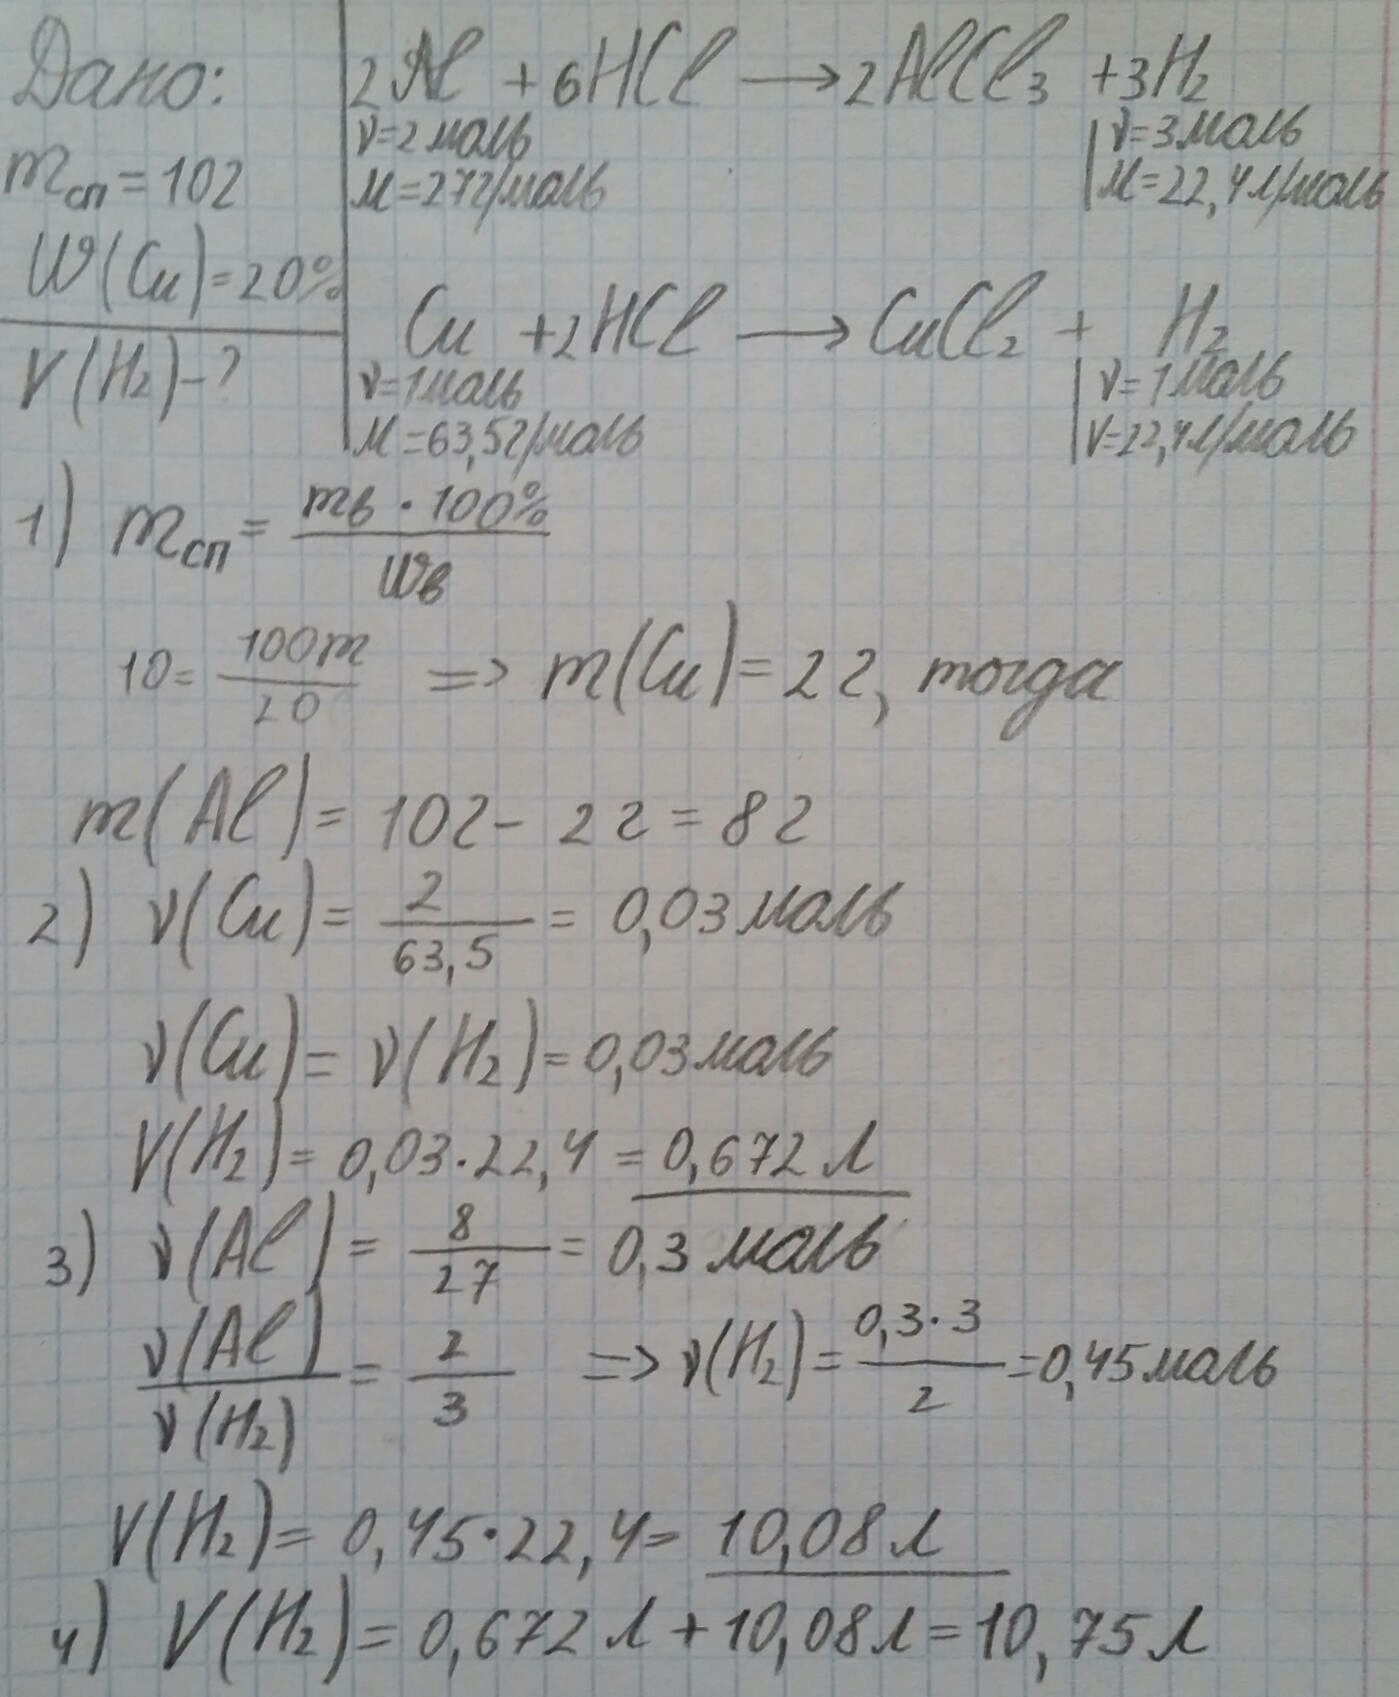 Дано:
mсп = 10г
W(Cu) = 20%
V(H₂) - ?
2Al + 6HCl → 2AlCl₃ + 3H₂
ν = 2 моль | ν = 3 моль
M = 27г/моль | M = 22,4 л/моль
Cu + 2HCl → CuCl₂ + H₂
ν = 1 моль | ν = 1 моль
M = 63,5г/моль | V = 22,4 л/моль
1) mсп = mв · 100% / Wв
10 = 100m / 20 => m(Cu) = 2г, тогда
m(Al) = 10г - 2г = 8г
2) ν(Cu) = 2 / 63,5 = 0,03 моль
ν(Cu) = ν(H₂) = 0,03 моль
V(H₂) = 0,03 · 22,4 = 0,672 л
3) ν(Al) = 8 / 27 = 0,3 моль
ν(Al) / ν(H₂) = 2 / 3 => ν(H₂) = 0,3 · 3 / 2 = 0,45 моль
V(H₂) = 0,45 · 22,4 = 10,08 л
4) V(H₂) = 0,672 л + 10,08 л = 10,75 л